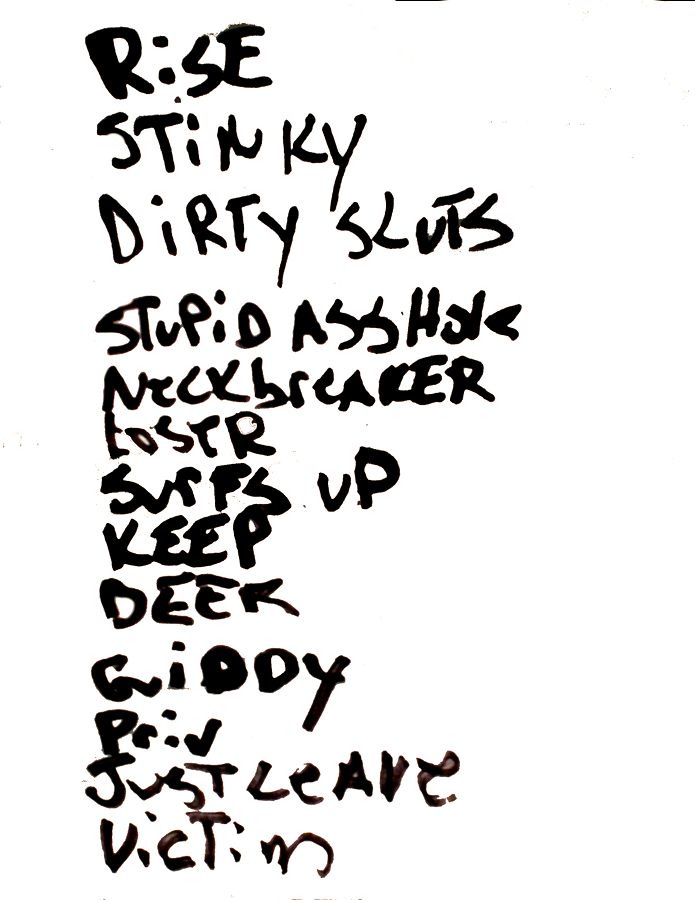 RiSE
STiNKY
DiRTY SLUTS
STuPiD ASSHole
NeCKbreAKER
LoSeR
SurFS UP
KEEP
DEER
GiDDY
Priv
JuST LeAVe
VicTim